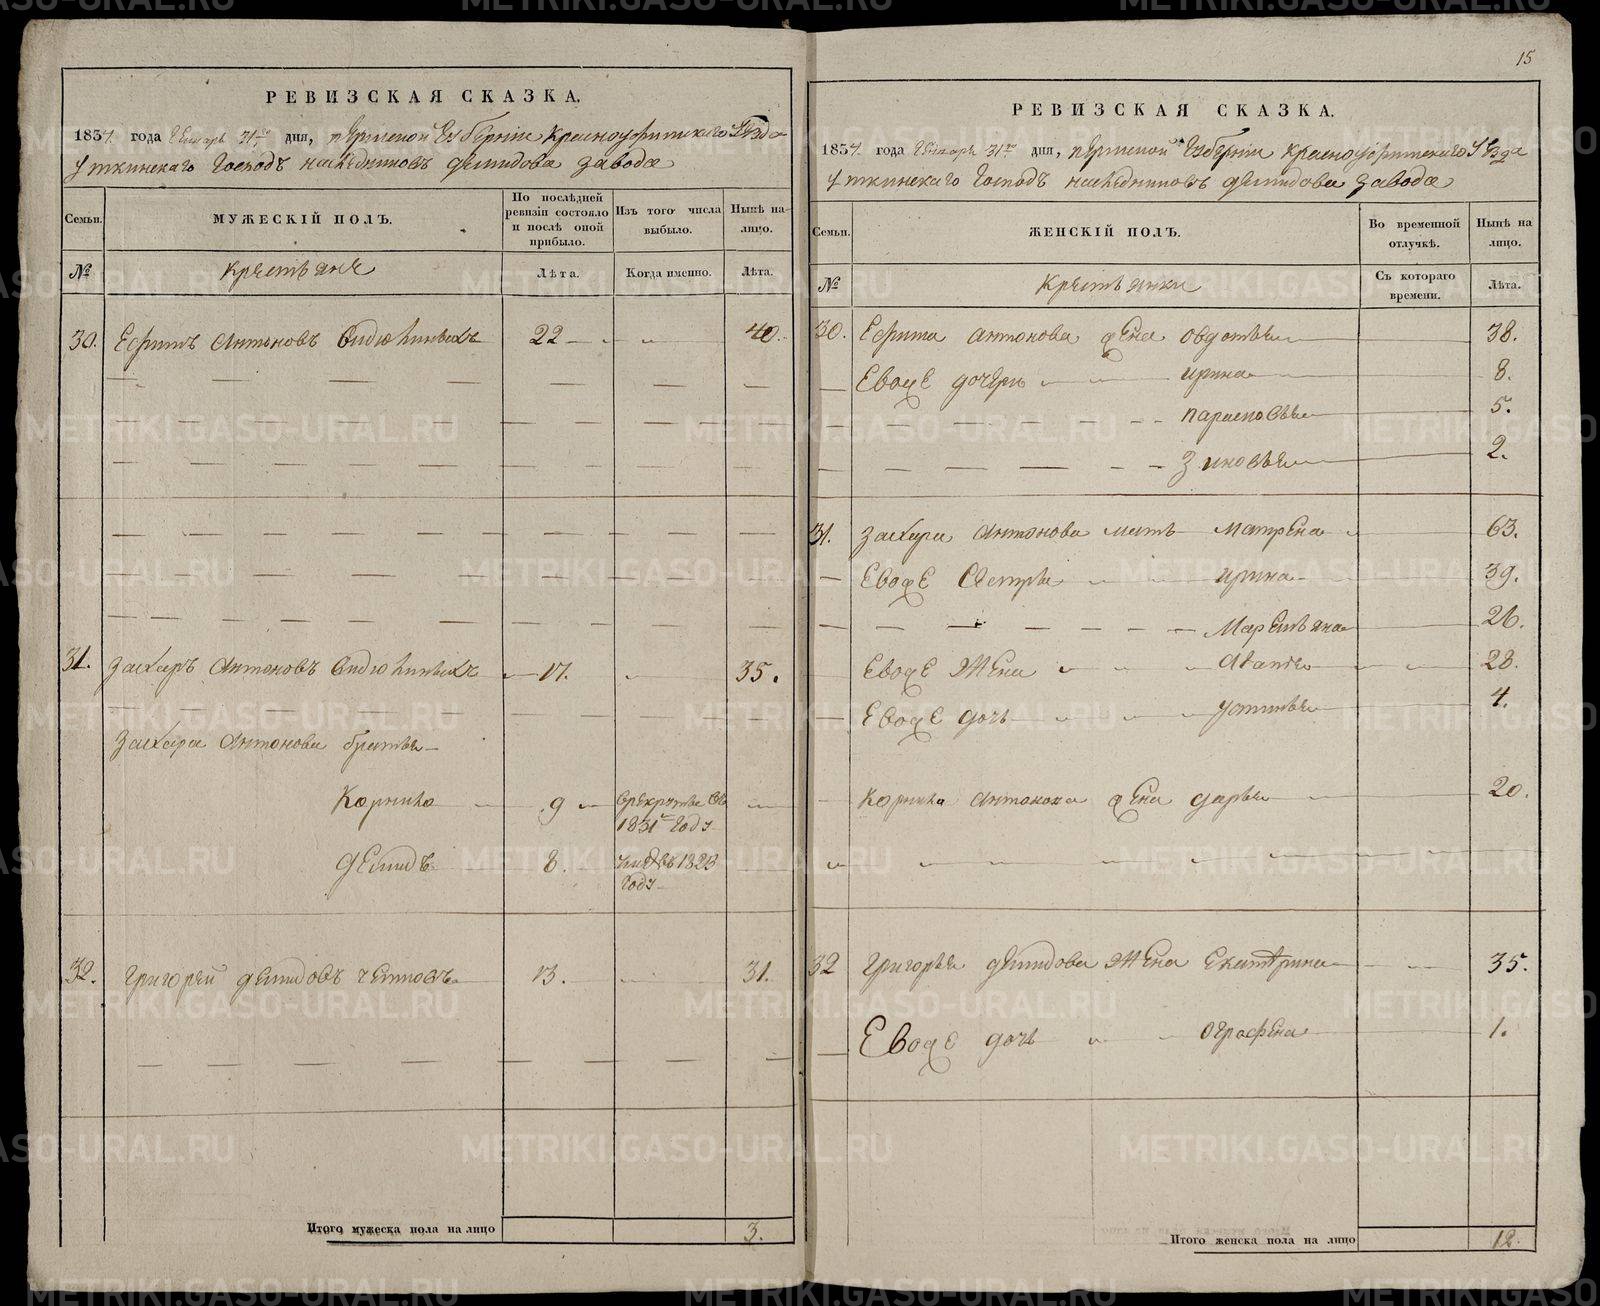 15
РЕВИЗСКАЯ СКАЗКА.
1834 года Генваря 31го дня, Пермской Губерніи Красноуфимскаго Уѣзда
Уткинскаго Господъ наслѣдниковъ Демидова завода
Семьи.
МУЖЕСКІЙ ПОЛЪ.
По послѣдней ревизіи состояло и послѣ оной прибыло.
Изъ того числа выбыло.
Нынѣ на лицо.
№
Крестьяне
Лѣта.
Когда именно.
Лѣта.
30. Ефимъ Антоновъ 22 40.
31. Захаръ Антоновъ 17. 35.
Захара Антонова братья
Корнило 9 в рекруты въ 1831м году
Демидъ 8. 1823 году
32. Григорей Демидовъ 13. 31.
Итого мужеска пола на лицо 3.
РЕВИЗСКАЯ СКАЗКА.
1834 года Генваря 31го дня, Пермской Губерніи Красноуфимскаго Уѣзда
Уткинскаго Господъ наслѣдниковъ Демидова завода
Семьи.
ЖЕНСКІЙ ПОЛЪ.
Во временной отлучкѣ.
Нынѣ на лицо.
№
Крестьянки
Съ котораго времени.
Лѣта.
30. Ефима Антонова жена Овдотья 38.
Евоже дочери Ирина 8.
Парасковья 5.
Зиновья 2.
31. Захара Антонова мать Матрена 63.
Евоже сестры Ирина 39.
Маремьяна 26.
Евоже жена 28.
Евоже дочь Устинья 4.
Корнила Антонова жена Дарья 20.
32 Григорья Демидова жена Екатерина 35.
Евоже дочь Ографена 1.
Итого женска пола на лицо 12.
METRIKI.GASO-URAL.RU